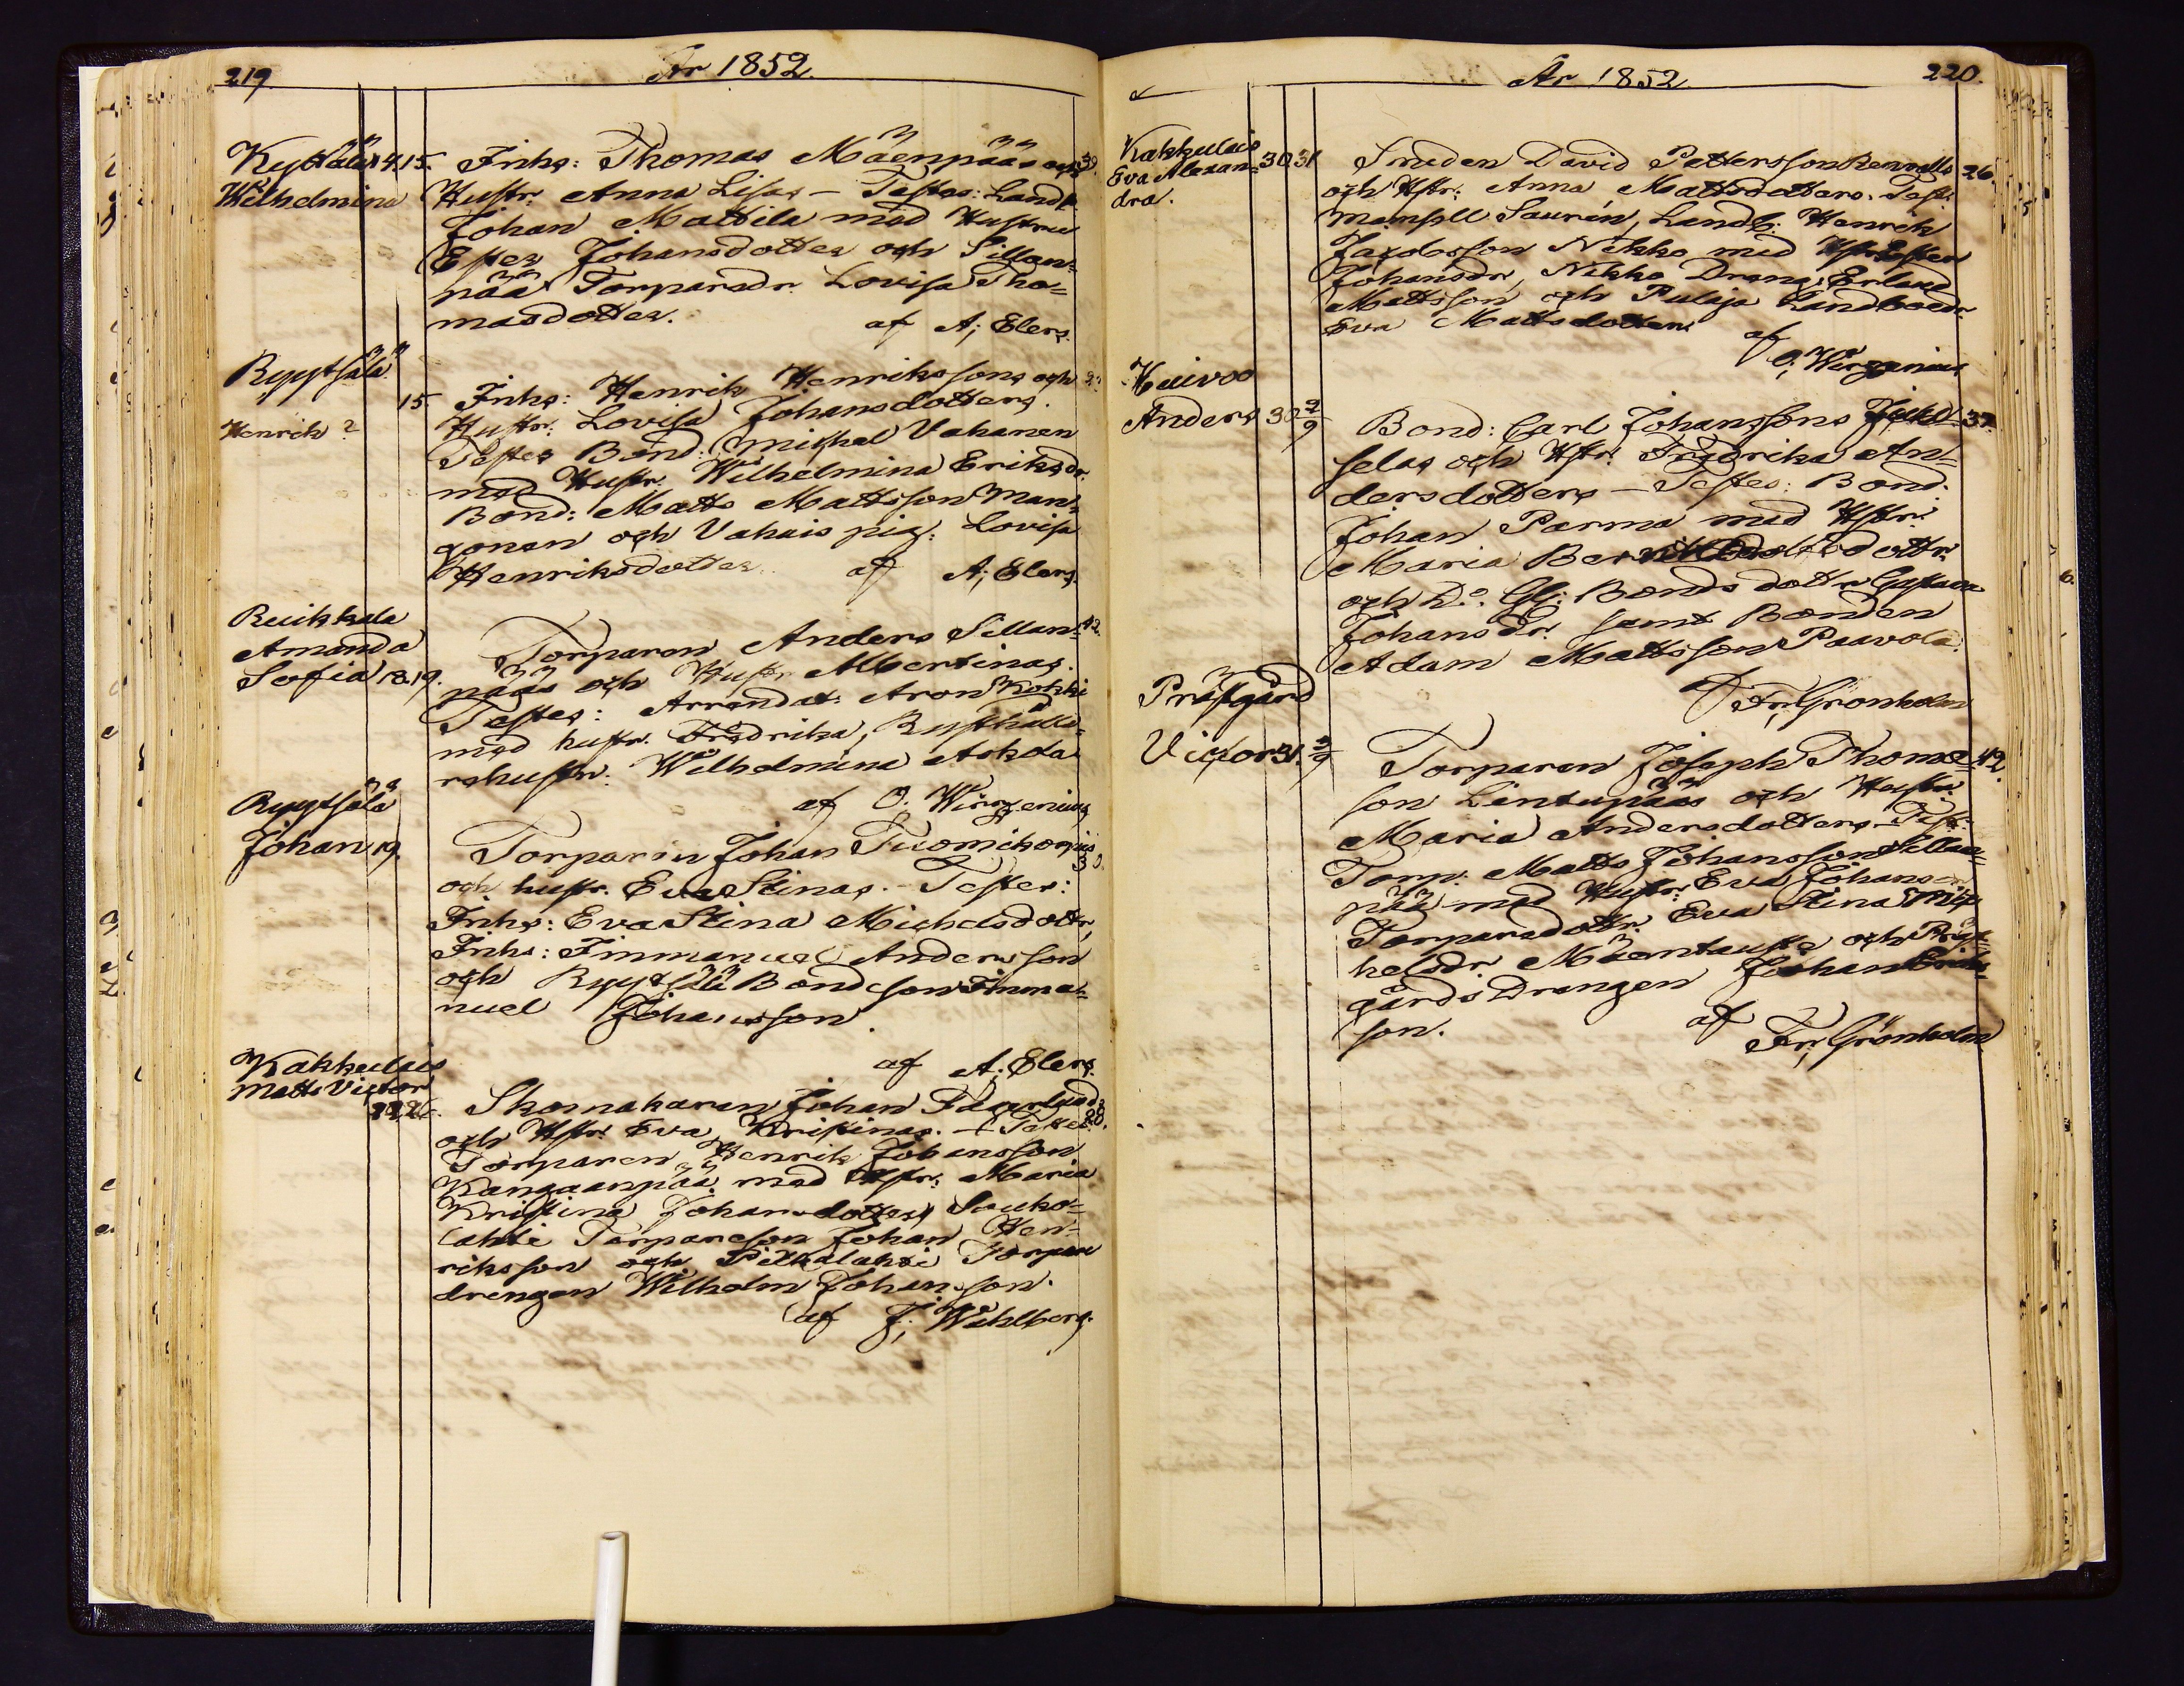 219. År 1852.
Kyttälä 4. 15. Inhs: Thomas Mäenpääs och 39.
Wilhelmina Hustr. Anna Lisas – Testes: Landb.
Johan Mattila med Hustru
Ester Johansdotter och Sillan=
pää Torparedr. Lovisa Tho=
masdotter. af A; Elers.
Ryytsälä
15. Inhs: Henrik Henrikssons och
Henrik? Hustr. Lovisa Johansdotters.
Testes Bond: Mickal Vahanen
med Hustr. Wilhelmina Eriksdr.
Bond: Matts Mattsson Man=
gonen och Vahais pig: Lovisa
Henriksdotter. af A; Elers.
Ruikkala
Amanda Torparen Anders Sillan= 42.
Sofia 18. 19. pääs och Hustr. Albertinas.
Testes: Arrendat: Aron Kohki
med hustr. Fredrika, Rusthålla=
rehustr. Wilhelmina Askola
af O. Wirzenius
Ryytsälä
Johan 19. Torparen Johan Tuomikorpis
och hustr. Eva Stinas. – Testes: 30.
Inhs: Eva Stina Michelsdottr,
Inhs: Immanuel Andersson
och Ryytsälä Bondeson Imma=
nuel Johansson.
af A; Elers.
Kakkulais
Matts Victor
22. 26. Skomakaren Johan Fagerlunds
och Hstr. Eva Kristinas. – Testes 28.
Torparen Henrik Johansson
Kangaanpää med Hstr. Maria
Kristina Johansdotter, Sauko=
lahti Torpareson Johan Hen=
riksson och Pitkälahti Torpare
drengen Wilhelm Johansson.
af J; Wahlberg.
År 1852. 220.
Kakkulais
Eva Alexan= 30 31 Smeden David Pettersson Renvalls 26.
dra. och Hstr. Anna Mattsdotters. Test:
Mamsell Saurén, Landb: Henrik
Jacobsson Nikko med Hstr Ester
Johansdr, Nikko Dreng: Erland
Mattsson och Pulaja Landboedr.
Eva Mattsdotter.
af
O; Wirzenius
Kuivoo
Anders 30 2/9 Bond: Carl Johanssons Juhd= 37.
selas och Hstr. Fredrika An=
dersdotters – Testes: Bond.
Johan Parma med Hstr.
Maria dottr.
och Do. Gl: Bonds dottr Gustava
Johansdr. samt Bonden
Adam Mattsson Paavola.
af Fr; Grönholm
Präsgård
Victor 31. 3/9 Torparen Joseph Thoma= 42.
son Lintupääs och Hustr.
Maria Andersdotters – Test:
Torp. Matts Johansson Sillan=
pää med Hustr: Eva Johansdr
Torparedottr. Eva Stina Mic=
helsdr Mäentausta och Präst=
gårds Drengen Johan Eriks=
son. af
Fr; Grönholm